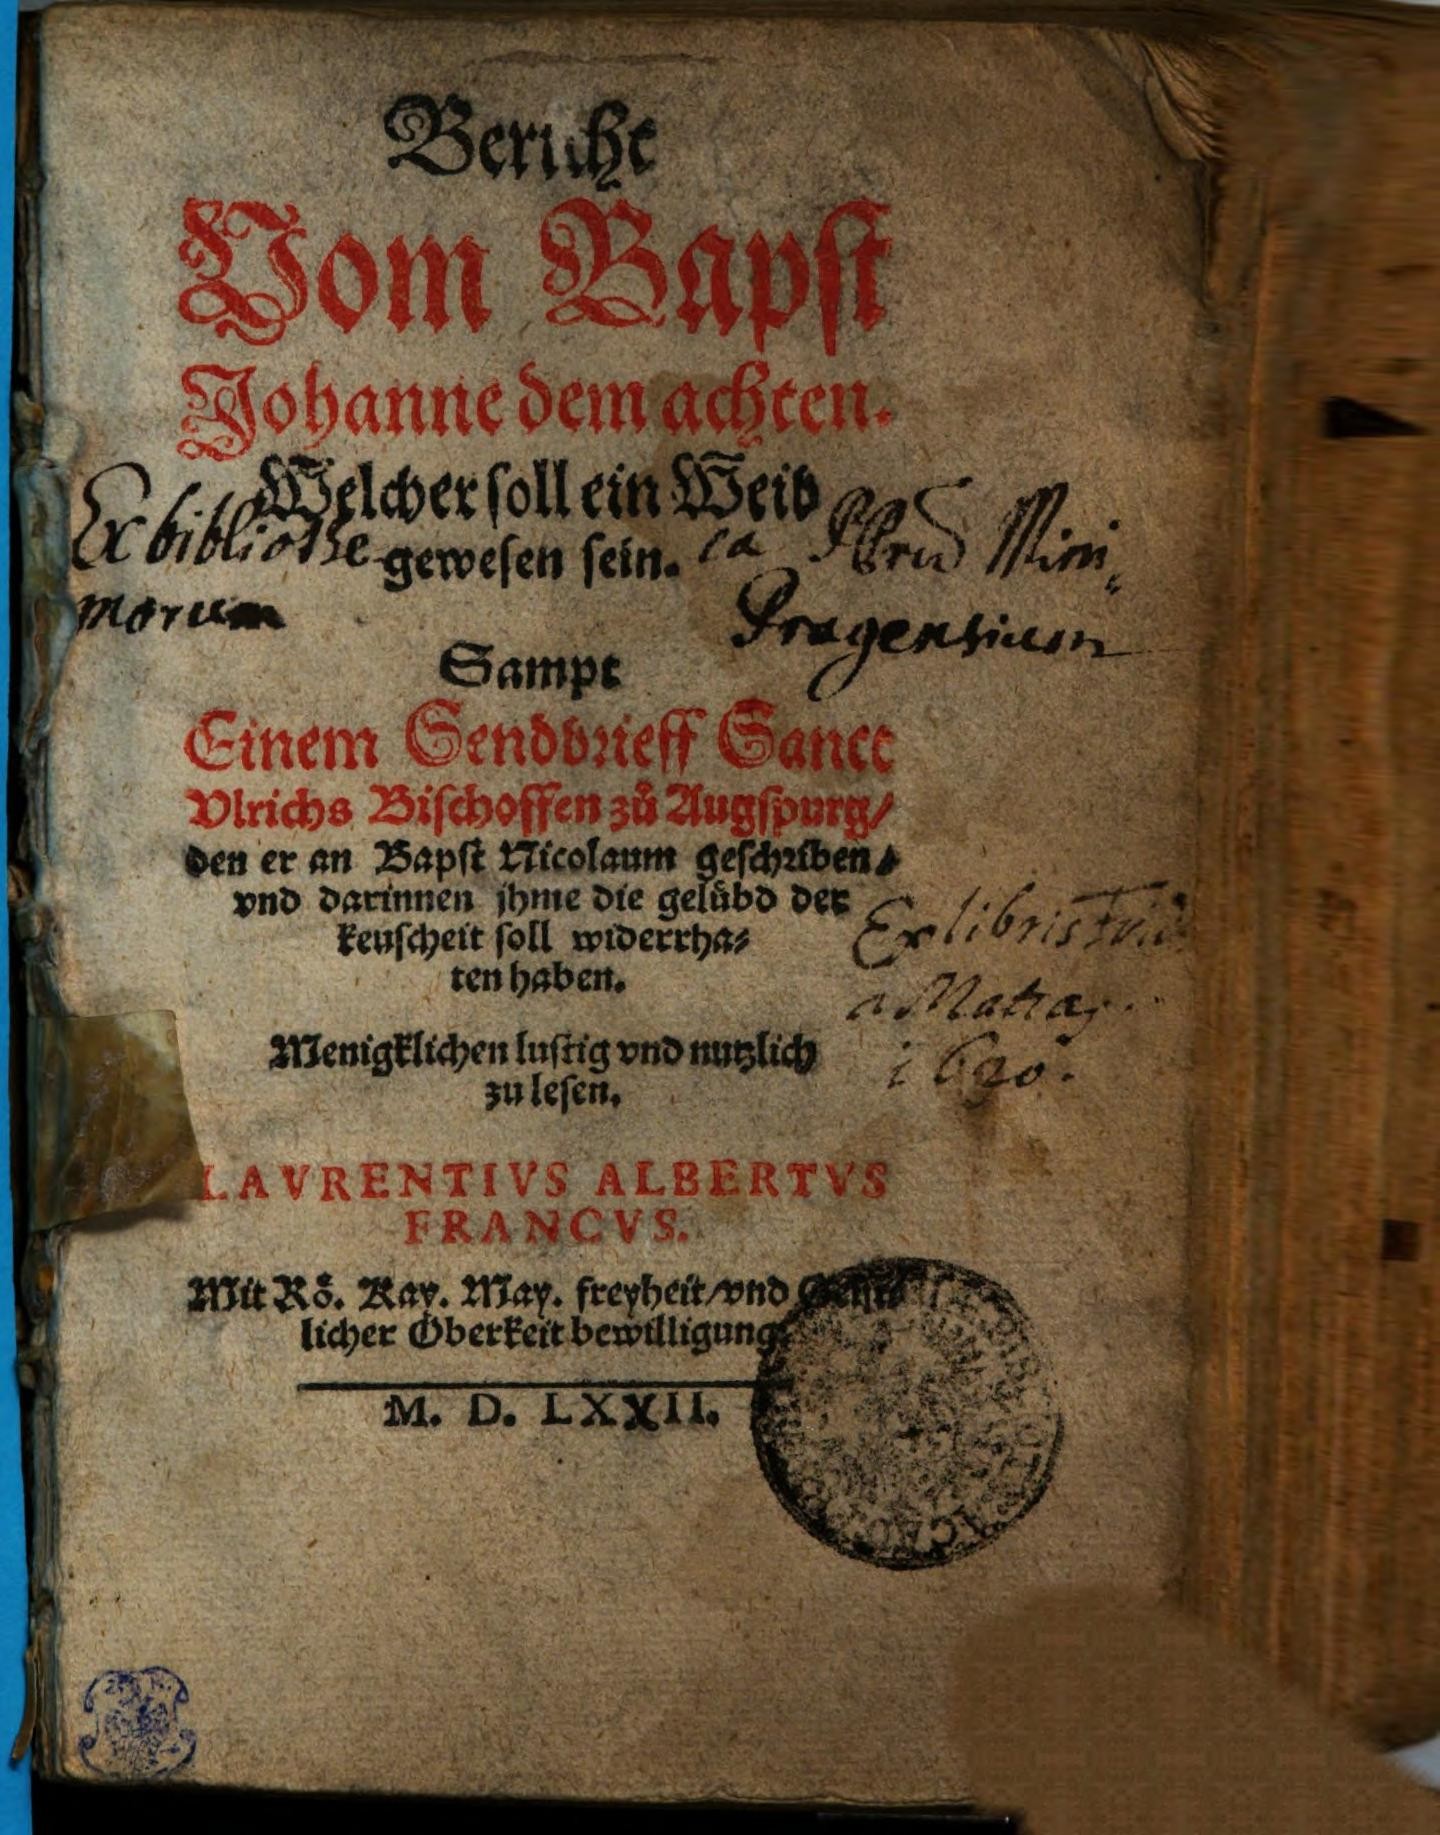 Bericht
Vom Bapst
Johanne dem achten.
Welcher soll ein Weib
gewesen sein.
Ex bibliothe ca PPrum Mini,
morum Pragensium
Sampt
Einem Sendbrieff Sanct
Vlrichs Bischoffen zů Augspurg/
den er an Bapst Nicolaum geschriben/
vnd darinnen jhme die gelübd der
keuscheit soll widerrha-
ten haben.
Ex libris
Menigklichen lustig vnd nutzlich
zu lesen.
LAVRENTIVS ALBERTVS
FRANCVS.
Mit Rö. Kay. May. freyheit/vnd Geist-
licher Oberkeit bewilligung.
M. D. LXXII.